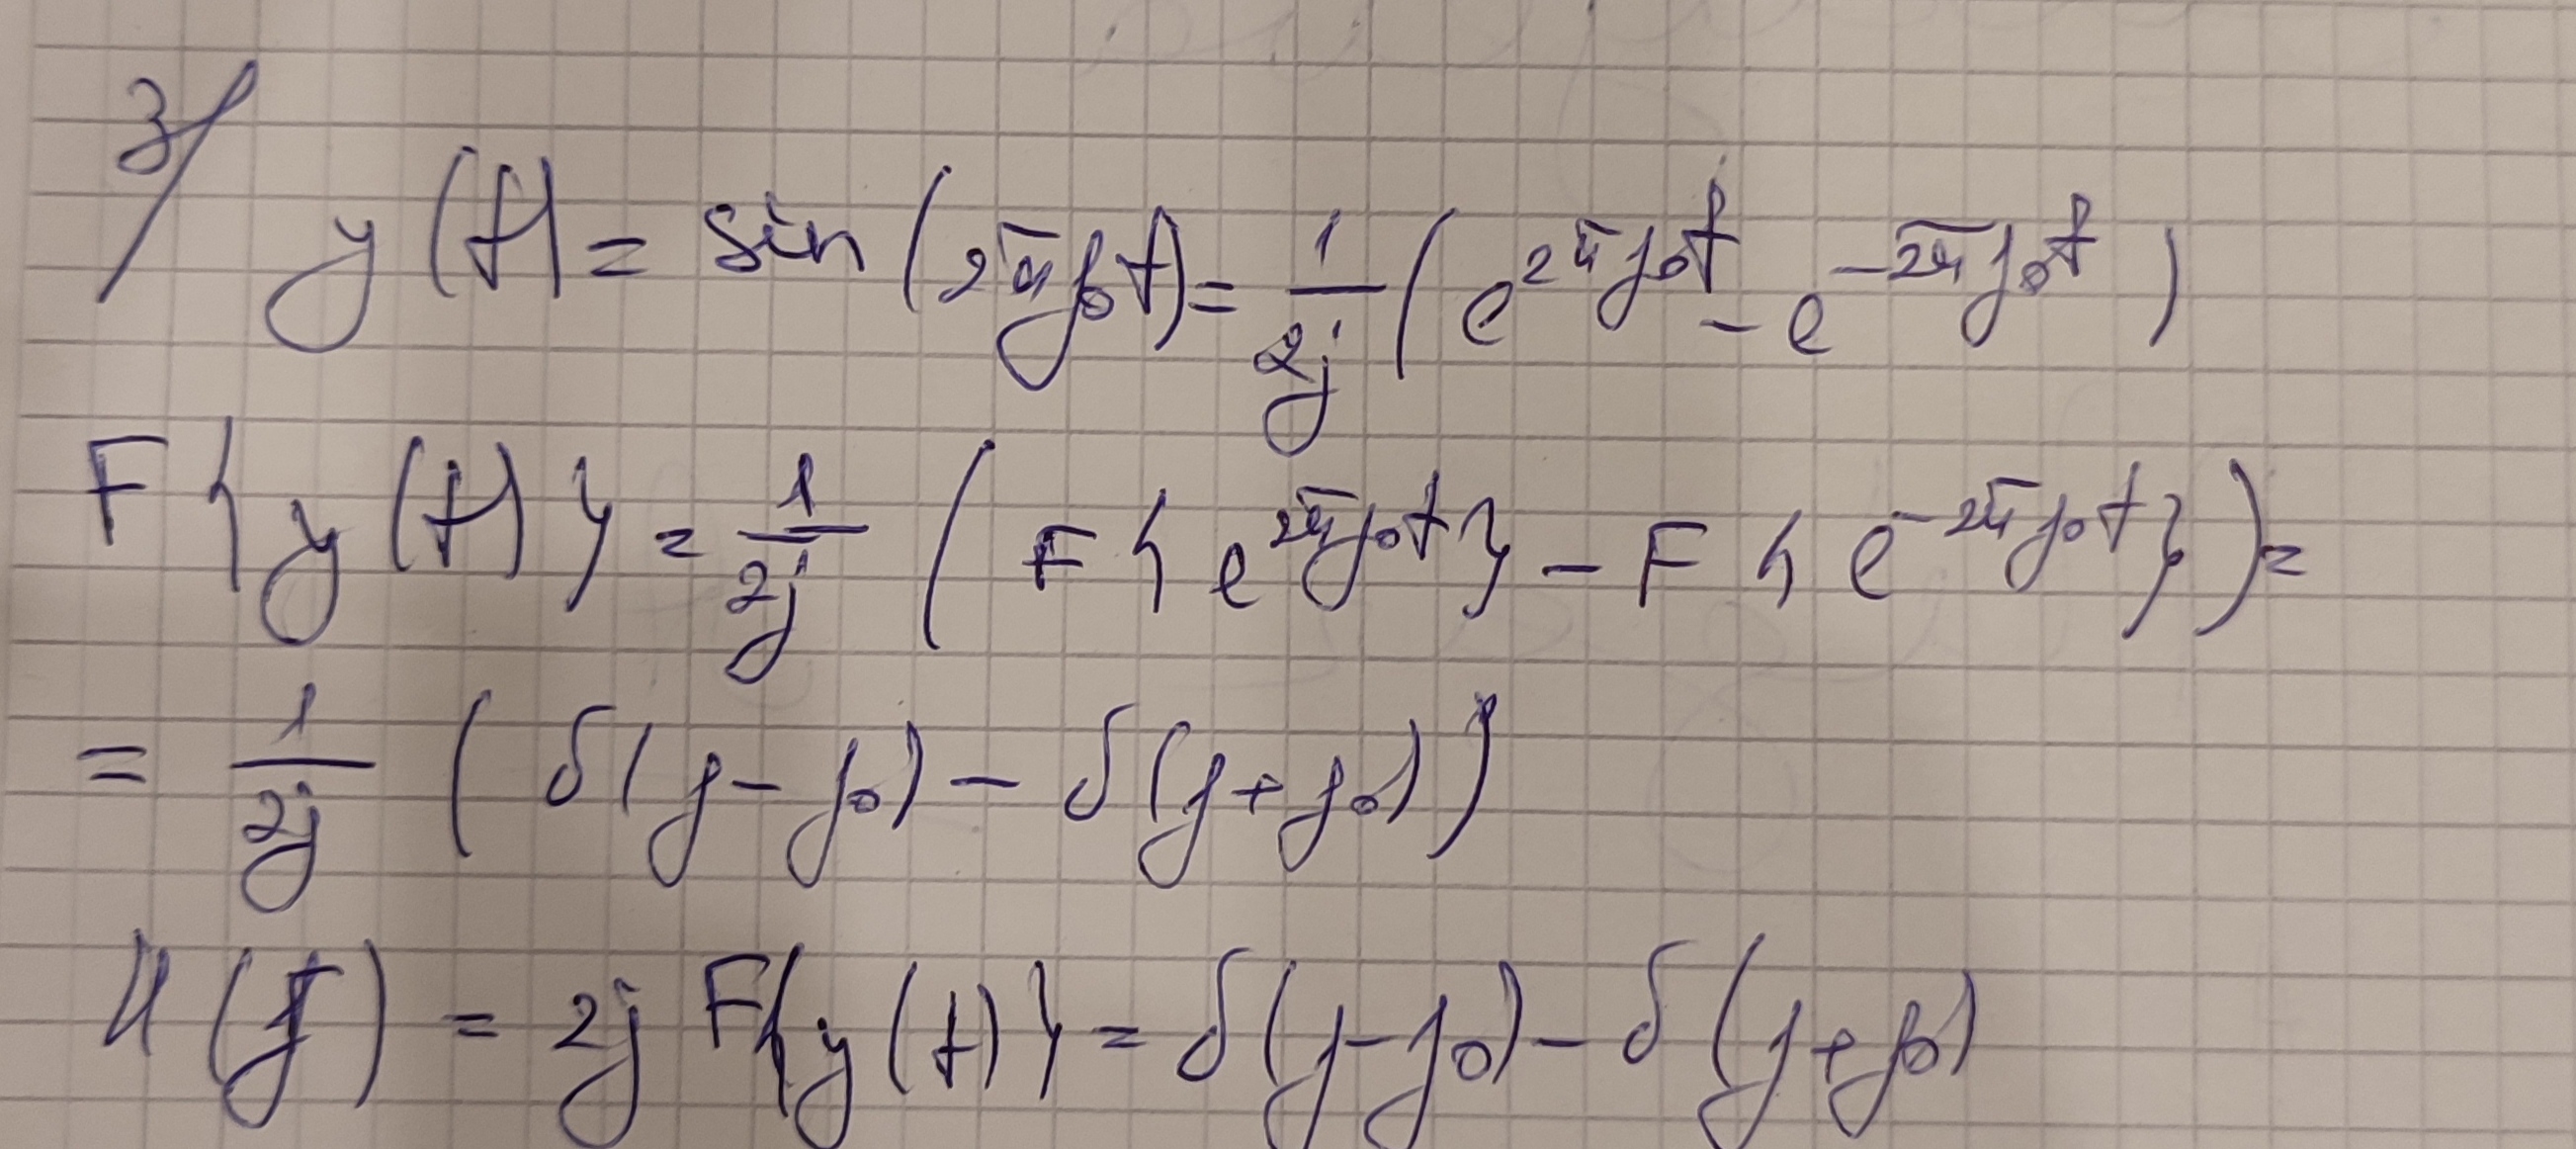 3/
y(t) = sin(2πf₀t) = 1/2j (e^{2πf₀t} - e^{-2πf₀t})
F{y(t)} = 1/2j (F{e^{2πf₀t}} - F{e^{-2πf₀t}}) =
= 1/2j (δ(f-f₀) - δ(f+f₀))
U(f) = 2j F{y(t)} = δ(f-f₀) - δ(f+f₀)